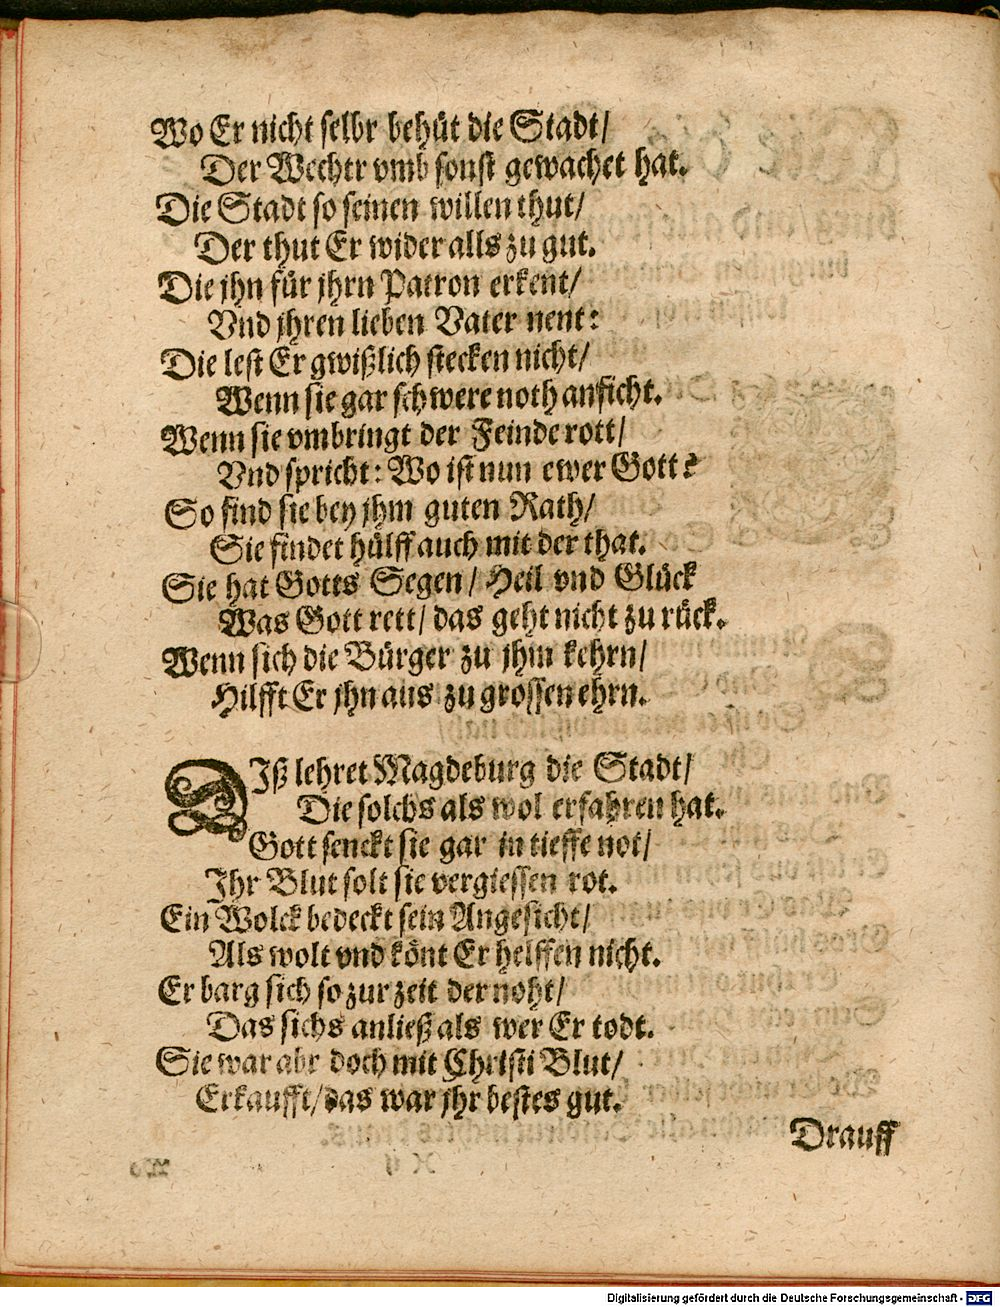 Wo Er nicht selbr behüt die Stadt/
Der Wechtr vmb sonst gewachet hat.
Die Stadt so seinen willen thut/
Der thut Er wider alls zu gut.
Die jhn für jhrn Patron erkent/
Vnd jhren lieben Vater nent:
Die lest Er gwißlich stecken nicht/
Wenn sie gar schwere noth anficht.
Wenn sie vmbringt der Feinde rott/
Vnd spricht: Wo ist nun ewer Gott?
So find sie bey jhm guten Rath/
Sie findet hülff auch mit der that.
Sie hat Gotts Segen/ Heil vnd Glück
Was Gott rett/ das geht nicht zu rück.
Wenn sich die Bürger zu jhm kehrn/
Hilfft Er jhn aus zu grossen ehrn.
DIß lehret Magdeburg die Stadt/
Die solchs als wol erfahren hat.
Gott senckt sie gar in tieffe not/
Ihr Blut solt sie vergiessen rot.
Ein Wolck bedeckt sein Angesicht/
Als wolt vnd könt Er helffen nicht.
Er barg sich so zur zeit der noht/
Das sichs anließ als wer Er todt.
Sie war abr doch mit Christi Blut/
Erkaufft/ das war jhr bestes gut.
Drauff
Digitalisierung gefördert durch die Deutsche Forschungsgemeinschaft - DFG